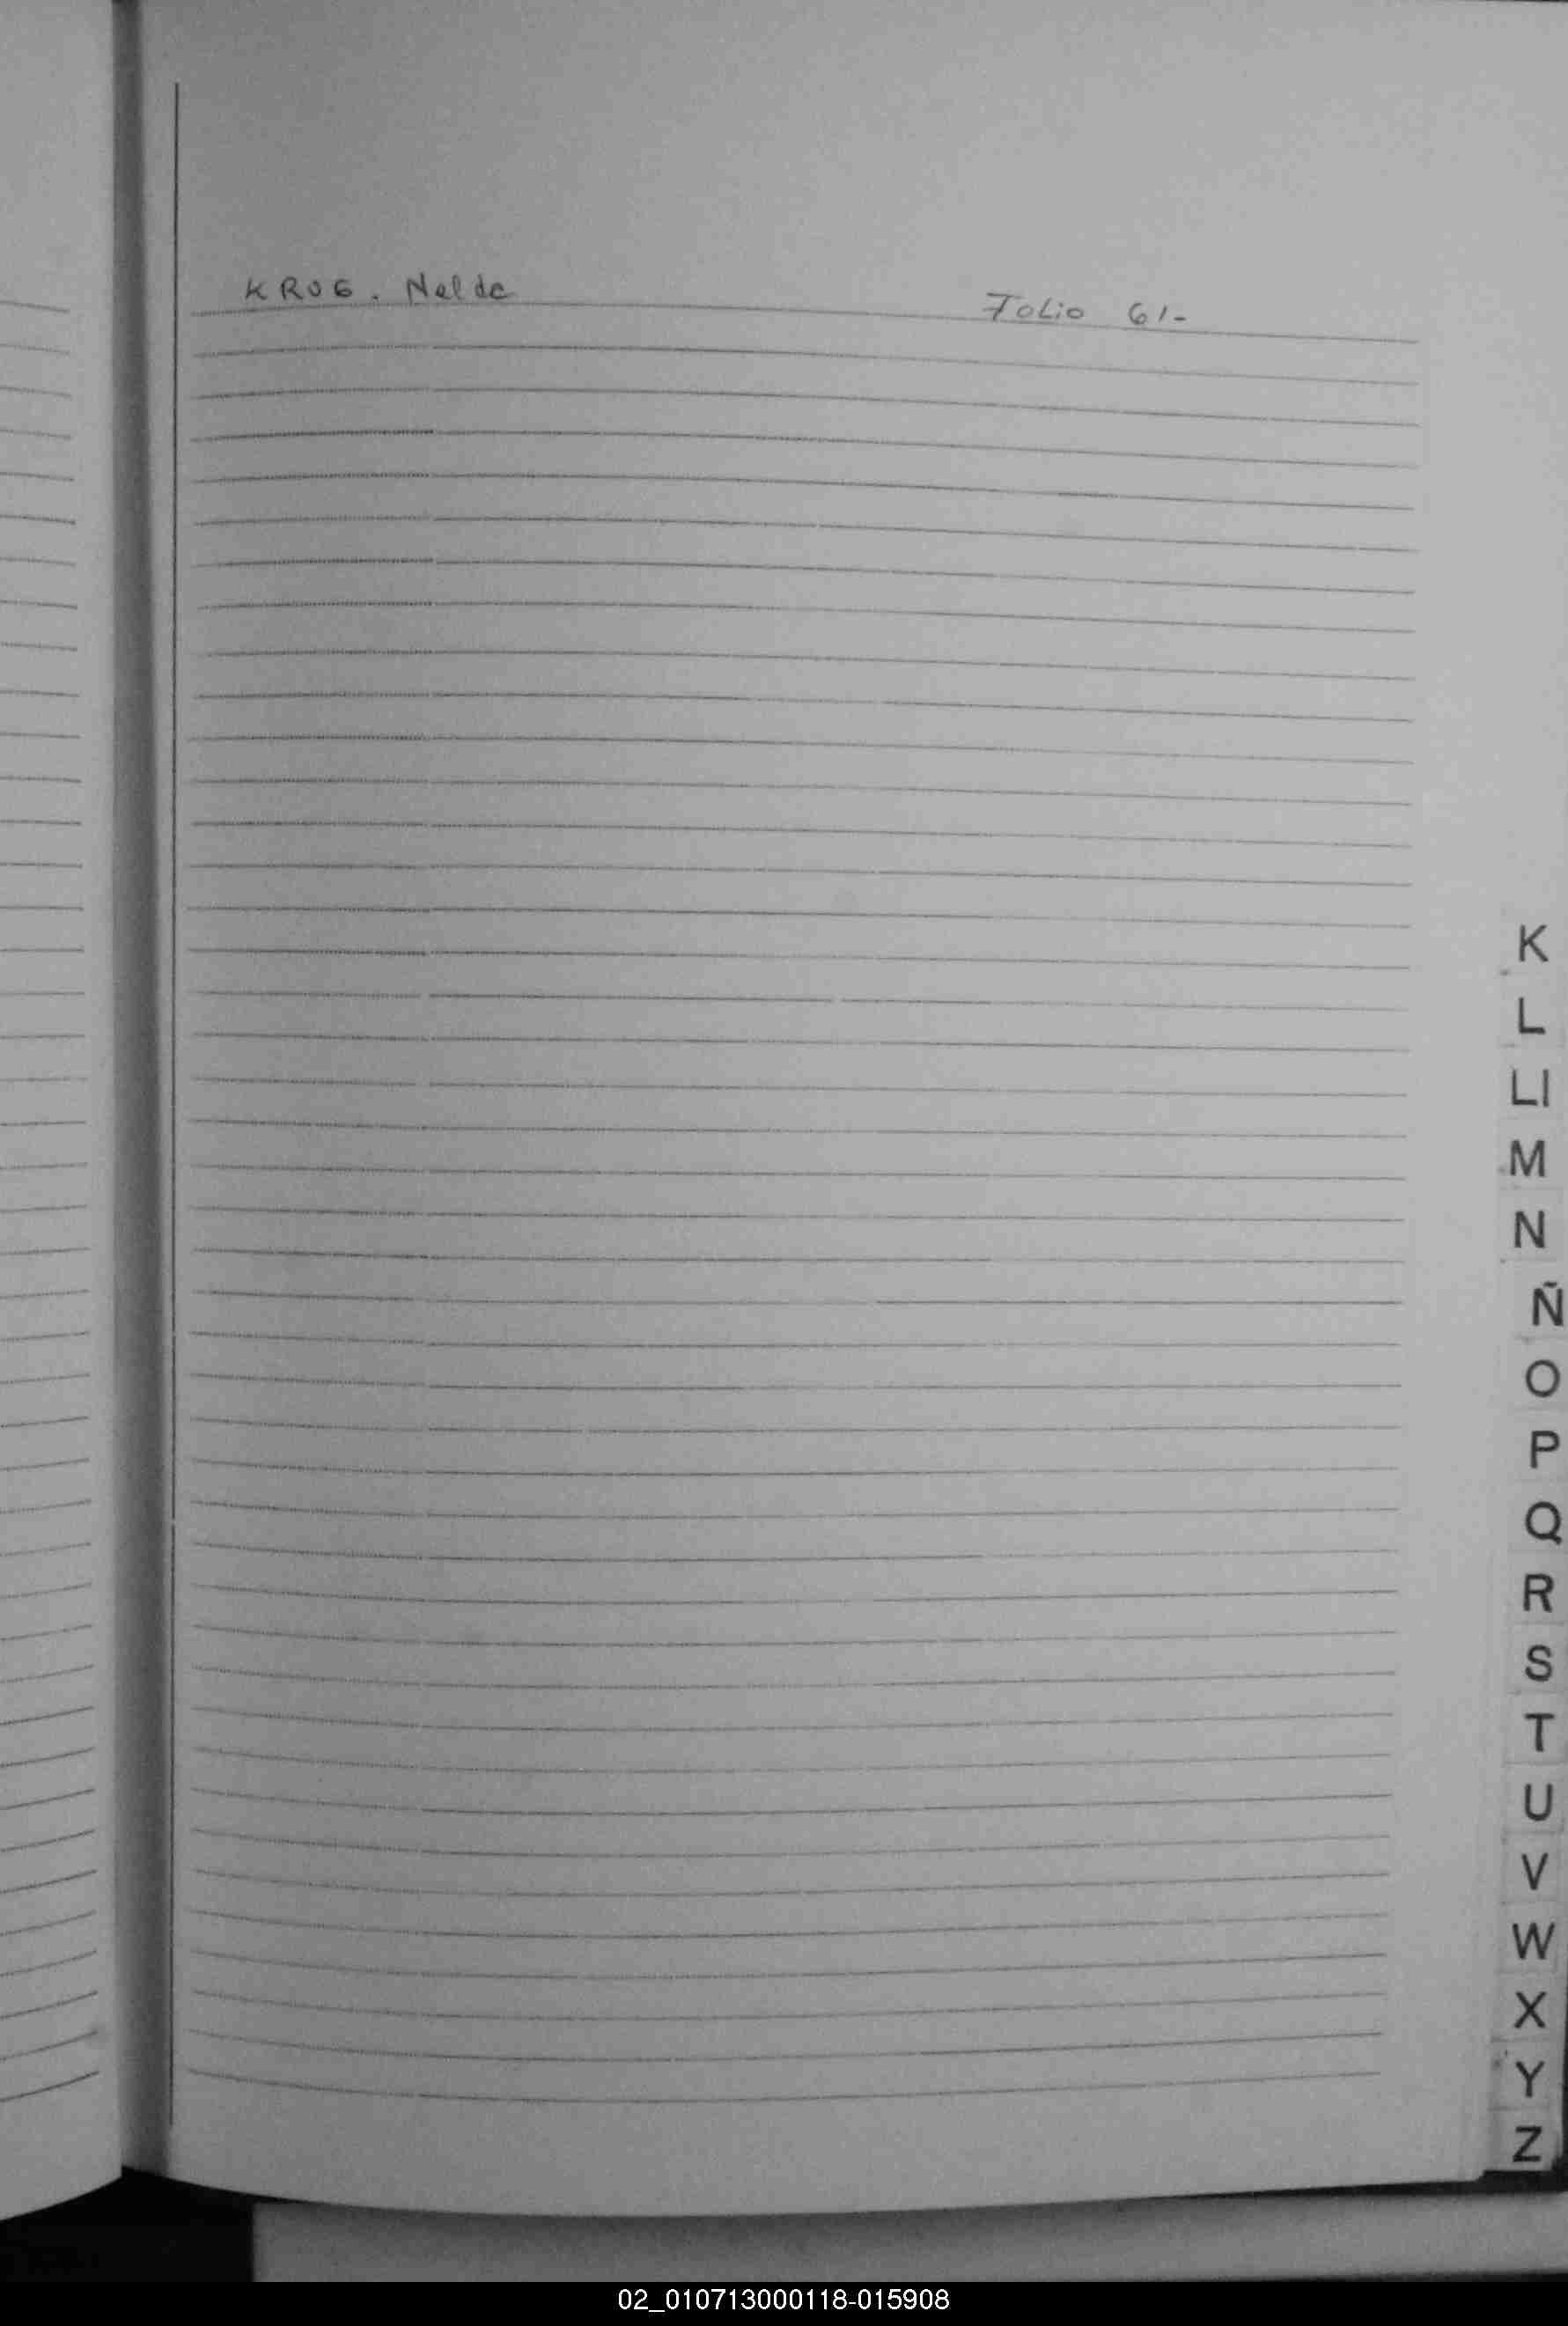 KROG. Nelda Folio 61-
K
L
Ll
M
N
Ñ
O
P
Q
R
S
T
U
V
W
X
Y
Z
02_010713000118-015908